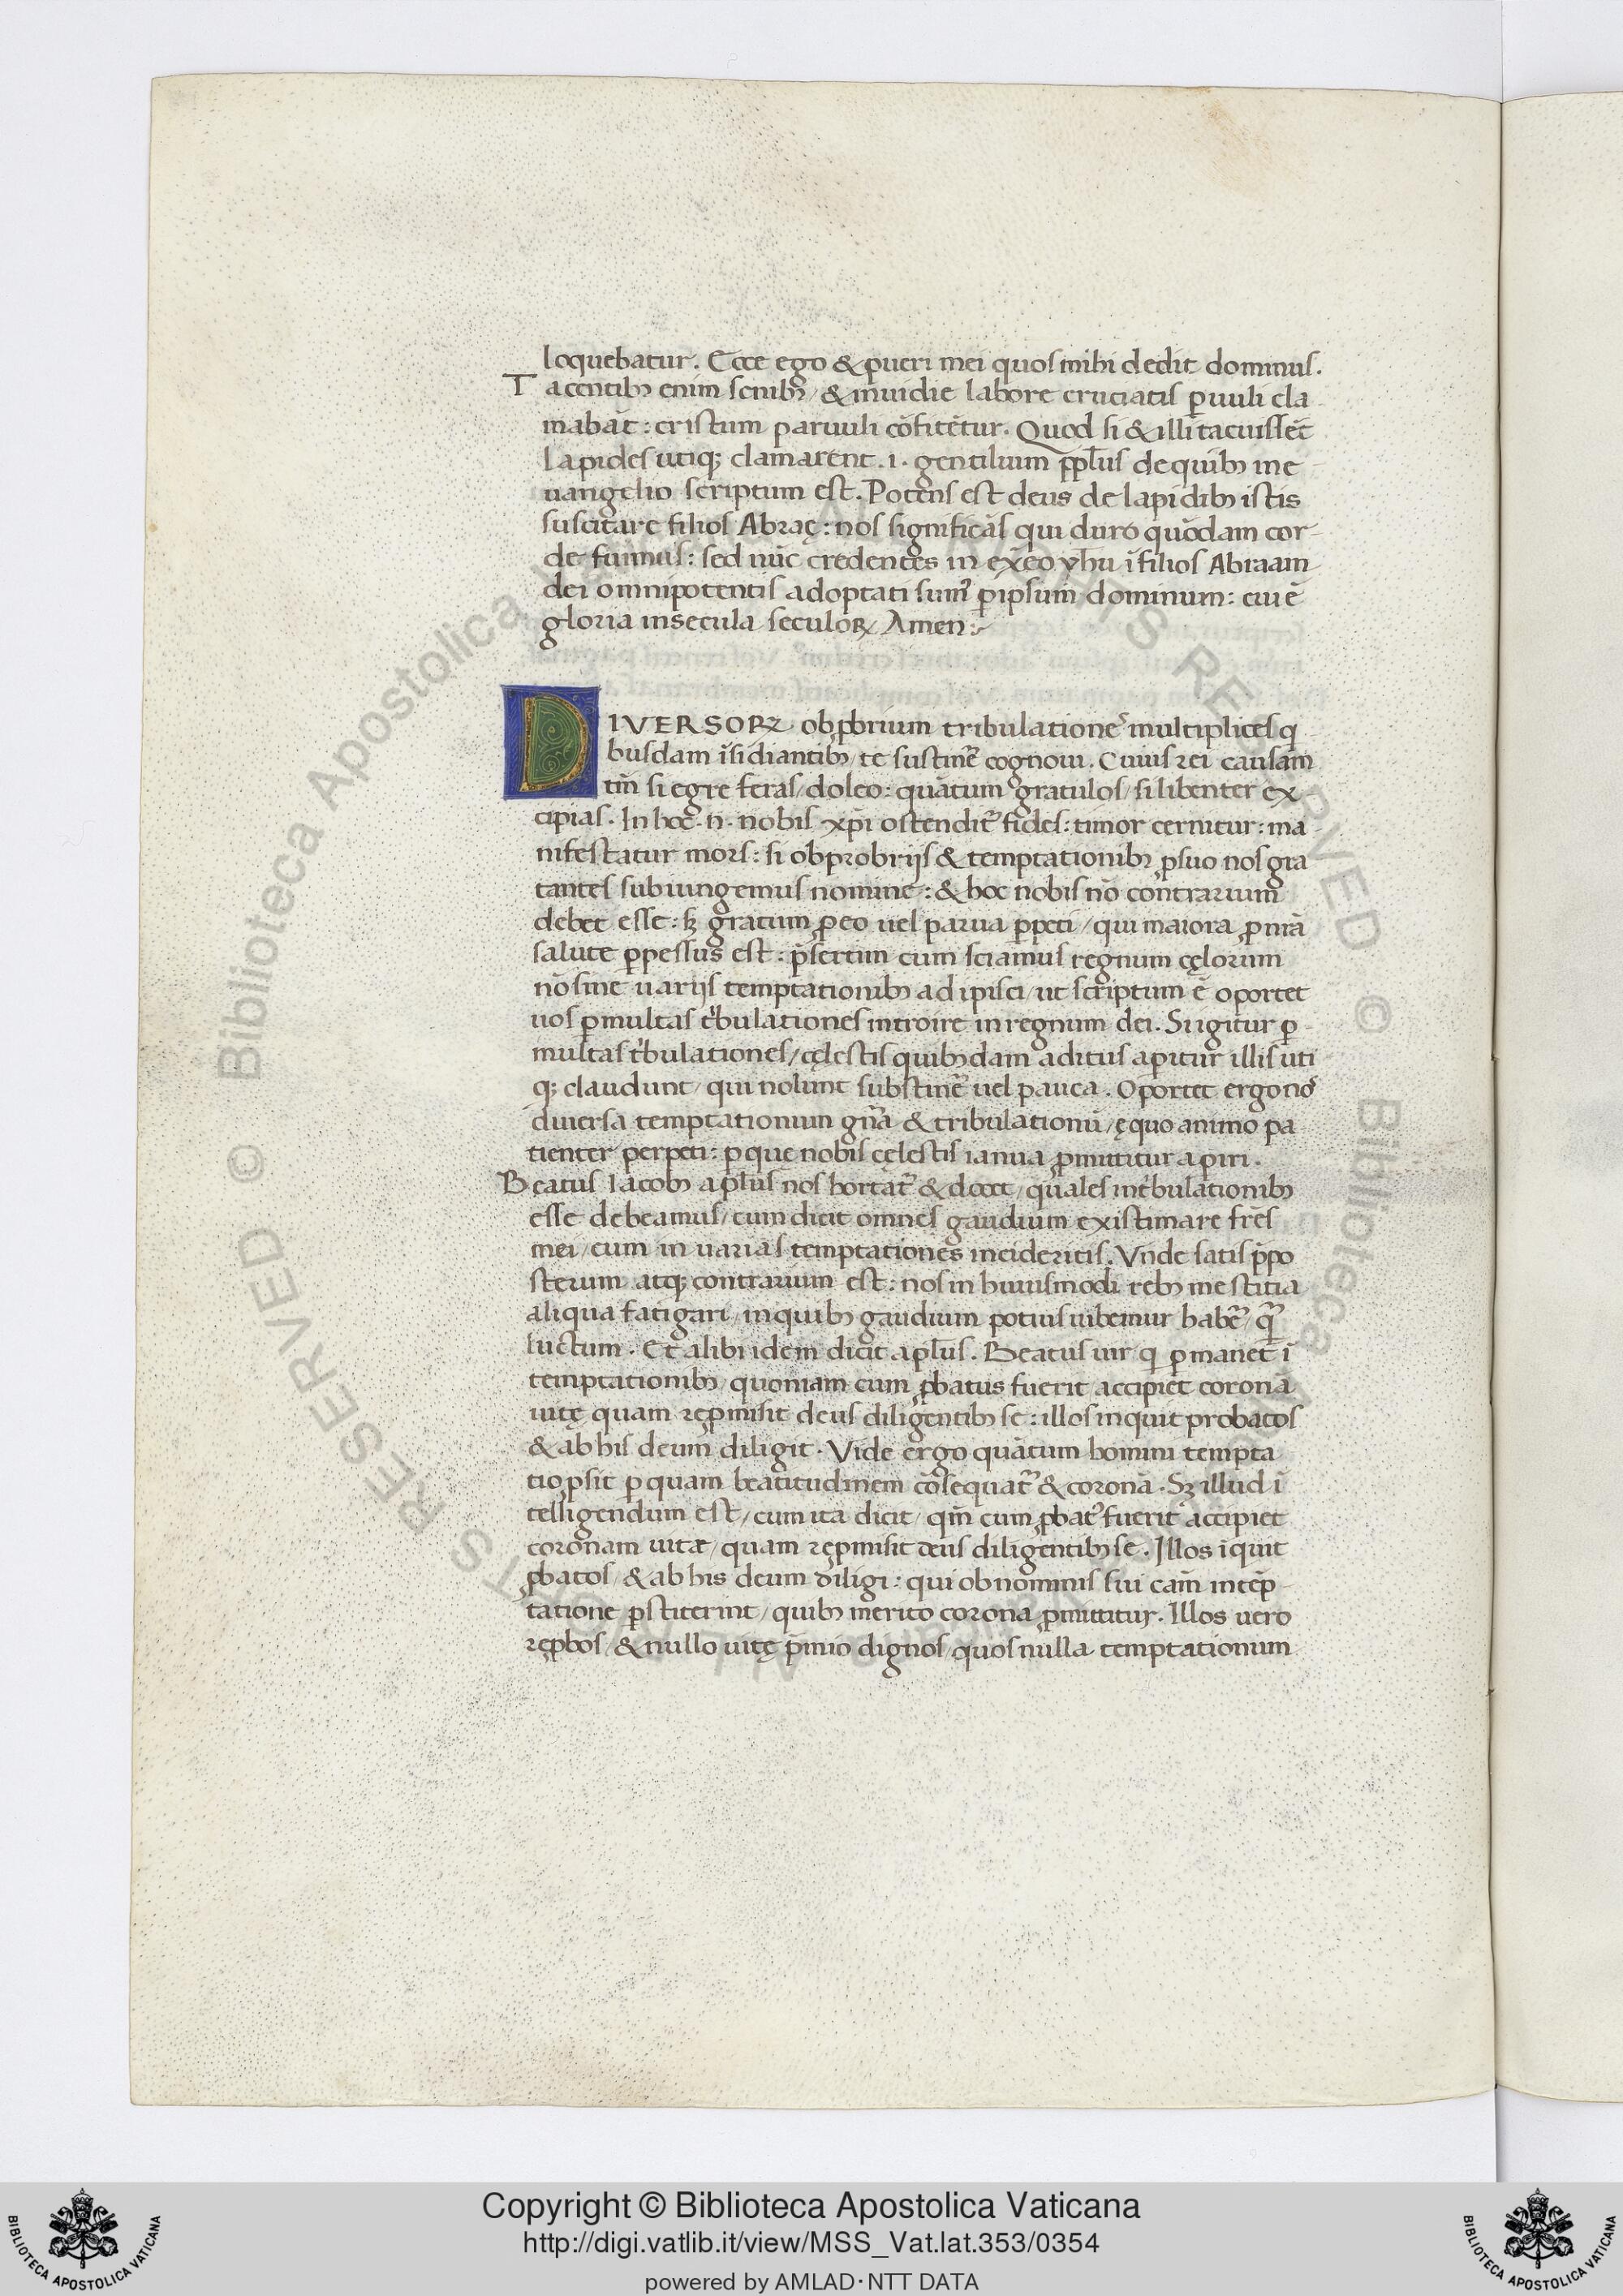 loquebatur. Ecce ego & pueri mei quos mihi dedit dominus.
Tacentibꝫ enim senibꝫ / & inuidie labore cruciatis ꝑuuli cla
mabāt: cristum paruuli cōfitētur. Quod si & illi tacuissēt
lapides utiqꝫ clamarent .i. gentilium ppl̄us de quibꝫ in e
uangelio scriptum est. Potens est deus de lapidibꝫ istis
suscitare filios Abraę: nos significās qui duro quōdam cor-
de fuimus: sed nūc credentes in ex̄eo yhū ī filios Abraam
dei omnipotentis adoptati sumꝰ ꝑ ipsum dominum: cui ē
gloria in secula seculoꝝ Amen:
DIVERSOꝜ obꝓbrium tribulationeˢ multiplices q
busdam īsidiantibꝫ / te sustiner̄ cognoui. Cuius rei causam
tm̄ si egre feras / doleo: quātum gratulos / si libenter ex
cipias. In hoc .n. nobis xp̄i ostendit᷑ fides: timor cernitur: ma
nifestatur mors: si obprobrijs & temptationibꝫ ꝓ suo nos gra
tantes subiungemus nomine: & hoc nobis nō contrarium
debet esse: sꝫ gratum ꝓ eo uel parua ꝑpeti / qui maiora ꝓ nr̄a
salute ꝑpessus est: p̄sertim cum sciamus regnum cęlorum
nō sine uarijs temptationibꝫ adipisci / ut scriptum ē oportet
uos ꝑ multas tⁱbulationes introire in regnum dei. Si igitur ꝑ
multas tⁱbulationes / cęlestis quibꝫdam aditus aperitur illis uti
qꝫ claudunt / qui nolunt substiner̄ uel pauca. Oportet ergo noˢ
diuersa temptationum gn̄a & tribulationū / ęquo animo pa
tienter perpeti: ꝑ que nobis cęlestis ianua ꝓmittitur aperiri.
Beatus Iacobꝫ apl̄us nos hortat᷑ & docet / quales in tⁱbulationibꝫ
esse debeamus / cum dicit omnes gaudium existimare fr̄es
mei / cum in uarias temptationes incideritis. Vnde satis p̄po
sterum atqꝫ contrarium est: nos in huiusmodi rebꝫ mestitia
aliqua fatigari / in quibꝫ gaudium potius iubemur haber̄ / qr̄
luctum. Et alibi idem dicit apl̄us. Beatus uir q ꝑmanet ī
temptationibꝫ / quoniam cum ꝓbatus fuerit accipiet coronā
uitę quam reꝓmisit deus diligentibꝫ se: illos inquit probatos
& ab his deum diligit. Vide ergo quātum homini tempta
tio ꝓsit ꝑ quam beatitudinem cōsequat᷑ & coronā. Sꝫ illud ī
telligendum est / cum ita dicit / qm̄ cum ꝓbatꝰ fuerit accipiet
coronam uitæ / quam reꝓmisit deus diligentibꝫ se. Illos īquit
ꝓbatos / & ab his deum diligi: qui ob nominis sui cam̄ in tēp
tatione ꝑstiterint / quibꝫ merito corona ꝓmittitur. Illos uero
reꝓbos / & nullo uitę p̄mio dignos / quos nulla temptationum
Copyright © Biblioteca Apostolica Vaticana
http://digi.vatlib.it/view/MSS_Vat.lat.353/0354
powered by AMLAD·NTT DATA